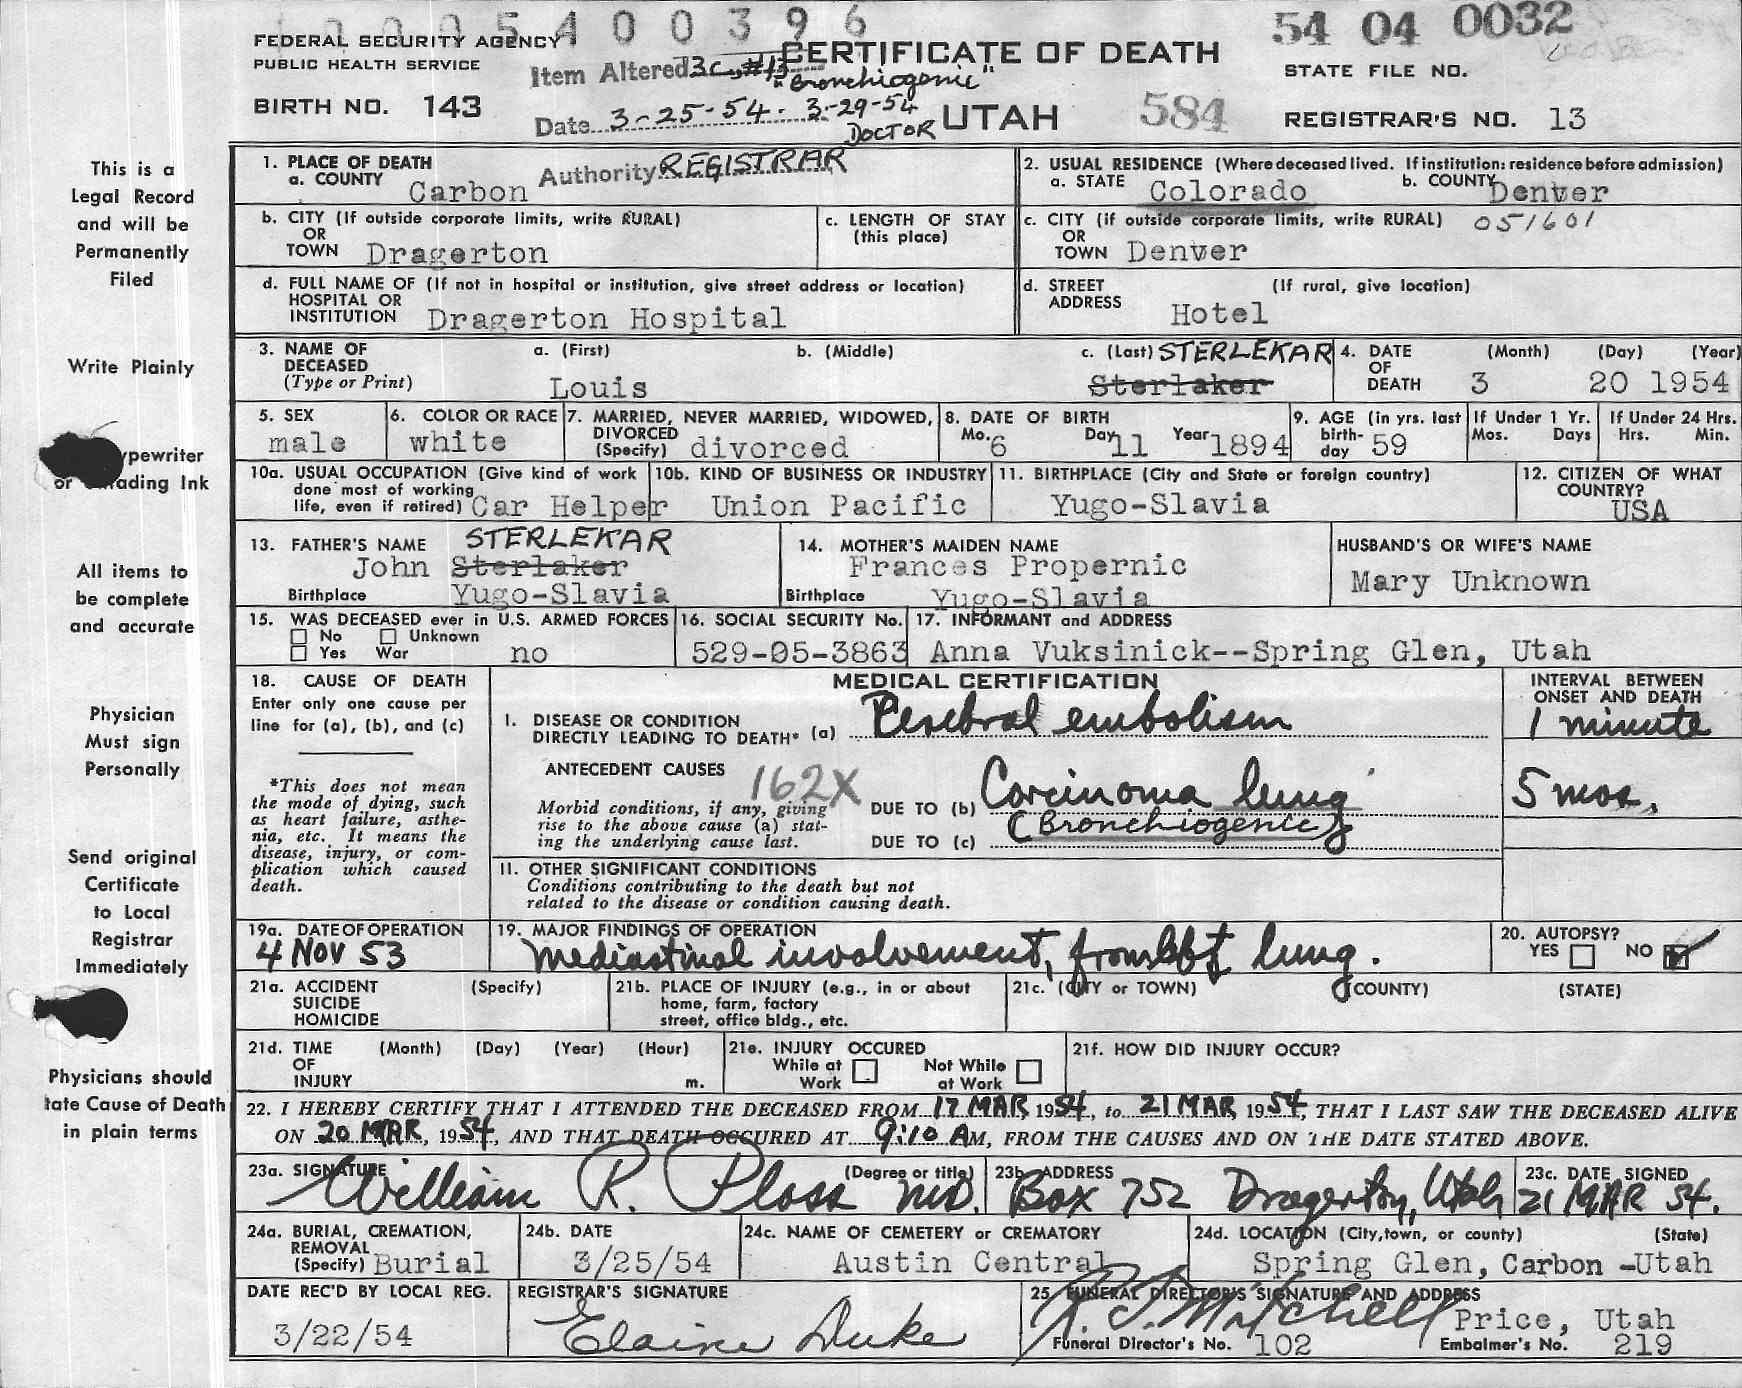 1 0 0 5 4 0 0 3 9 6
54 04 0032
FEDERAL SECURITY AGENCY
PUBLIC HEALTH SERVICE
Item Altered 3c, #13
"Bronchiogenic"
CERTIFICATE OF DEATH
STATE FILE NO.
BIRTH NO. 143
Date 3-25-54 - 3-29-54
DOCTOR
UTAH
584
REGISTRAR'S NO. 13
Authority REGISTRAR
This is a
Legal Record
and will be
Permanently
Filed
Write Plainly
ypewriter
or ading Ink
All items to
be complete
and accurate
Physician
Must sign
Personally
Send original
Certificate
to Local
Registrar
Immediately
Physicians should
tate Cause of Death
in plain terms
1. PLACE OF DEATH
a. COUNTY Carbon
2. USUAL RESIDENCE (Where deceased lived. If institution: residence before admission)
a. STATE Colorado b. COUNTY Denver
b. CITY (If outside corporate limits, write RURAL)
OR
TOWN Dragerton
c. LENGTH OF STAY
(this place)
c. CITY (if outside corporate limits, write RURAL) 051601
OR
TOWN Denver
d. FULL NAME OF (If not in hospital or institution, give street address or location)
HOSPITAL OR
INSTITUTION Dragerton Hospital
d. STREET (If rural, give location)
ADDRESS Hotel
3. NAME OF a. (First) b. (Middle) c. (Last) STERLEKAR
DECEASED
(Type or Print) Louis Sterlaker
4. DATE (Month) (Day) (Year)
OF
DEATH 3 20 1954
5. SEX
male
6. COLOR OR RACE
white
7. MARRIED, NEVER MARRIED, WIDOWED,
DIVORCED
(Specify) divorced
8. DATE OF BIRTH
Mo. 6 Day 11 Year 1894
9. AGE (in yrs. last
birth-
day 59
If Under 1 Yr.
Mos. Days
If Under 24 Hrs.
Hrs. Min.
10a. USUAL OCCUPATION (Give kind of work
done most of working
life, even if retired) Car Helper
10b. KIND OF BUSINESS OR INDUSTRY
Union Pacific
11. BIRTHPLACE (City and State or foreign country)
Yugo-Slavia
12. CITIZEN OF WHAT
COUNTRY?
USA
13. FATHER'S NAME STERLEKAR
John Sterlaker
Birthplace Yugo-Slavia
14. MOTHER'S MAIDEN NAME
Frances Propernic
Birthplace Yugo-Slavia
HUSBAND'S OR WIFE'S NAME
Mary Unknown
15. WAS DECEASED ever in U.S. ARMED FORCES
No Unknown
Yes War no
16. SOCIAL SECURITY No.
529-05-3863
17. INFORMANT and ADDRESS
Anna Vuksinick--Spring Glen, Utah
18. CAUSE OF DEATH
Enter only one cause per
line for (a), (b), and (c)
*This does not mean
the mode of dying, such
as heart failure, asthe-
nia, etc. It means the
disease, injury, or com-
plication which caused
death.
MEDICAL CERTIFICATION
I. DISEASE OR CONDITION
DIRECTLY LEADING TO DEATH* (a) Cerebral embolism
ANTECEDENT CAUSES 162X
Morbid conditions, if any, giving
rise to the above cause (a) stat-
ing the underlying cause last.
DUE TO (b) Carcinoma lung
(Bronchiogenic)
DUE TO (c)
INTERVAL BETWEEN
ONSET AND DEATH
1 minute
5 mos.
II. OTHER SIGNIFICANT CONDITIONS
Conditions contributing to the death but not
related to the disease or condition causing death.
19a. DATE OF OPERATION
4 NOV 53
19. MAJOR FINDINGS OF OPERATION
Mediastinal involvement, from left lung.
20. AUTOPSY?
YES NO
21a. ACCIDENT (Specify)
SUICIDE
HOMICIDE
21b. PLACE OF INJURY (e.g., in or about
home, farm, factory
street, office bldg., etc.
21c. (CITY or TOWN) (COUNTY) (STATE)
21d. TIME (Month) (Day) (Year) (Hour)
OF
INJURY m.
21e. INJURY OCCURED
While at Not While
Work at Work
21f. HOW DID INJURY OCCUR?
22. I HEREBY CERTIFY THAT I ATTENDED THE DECEASED FROM 17 MAR 1954, to 21 MAR 1954, THAT I LAST SAW THE DECEASED ALIVE
ON 20 MAR, 1954, AND THAT DEATH OCCURED AT 9:10 AM, FROM THE CAUSES AND ON THE DATE STATED ABOVE.
23a. SIGNATURE (Degree or title)
William R. Ploss MD.
23b. ADDRESS
Box 752 Dragerton, Utah
23c. DATE SIGNED
21 MAR 54.
24a. BURIAL, CREMATION,
REMOVAL
(Specify) Burial
24b. DATE
3/25/54
24c. NAME OF CEMETERY or CREMATORY
Austin Central
24d. LOCATION (City, town, or county) (State)
Spring Glen, Carbon -Utah
DATE REC'D BY LOCAL REG.
3/22/54
REGISTRAR'S SIGNATURE
Elaine Duke
25. FUNERAL DIRECTOR'S SIGNATURE AND ADDRESS
R. J. Mitchell Price, Utah
Funeral Director's No. 102 Embalmer's No. 219